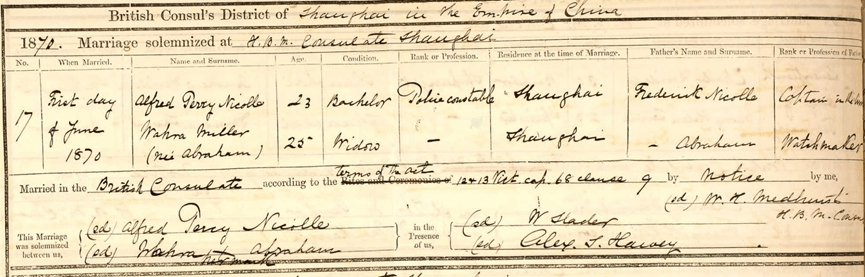 British Consul's District of Shanghai in the Empire of China
1870. Marriage solemnized at H.B.M. Consulate Shanghai
No. When Married. Name and Surname. Age. Condition. Rank or Profession. Residence at the time of Marriage. Father's Name and Surname. Rank or Profession of Father
17 First day of June 1870
Alfred Percy Nicolle 23 Bachelor Police constable Shanghai Frederick Nicolle Captain in the
Wahra Miller (née Abraham) 25 Widow – Shanghai – Abraham Watchmaker
terms of the act
Married in the British Consulate according to the Rites and Ceremonies of 12 & 13 Vict. cap. 68 clause 9 by Notice by me,
(ed) W. H. Medhurst
H.B.M. Consul
This Marriage was solemnized between us,
(ed) Alfred Percy Nicolle
(ed) Wahra Abraham
her mark
in the Presence of us,
(ed) W Slader
(ed) Alex. S. Harvey